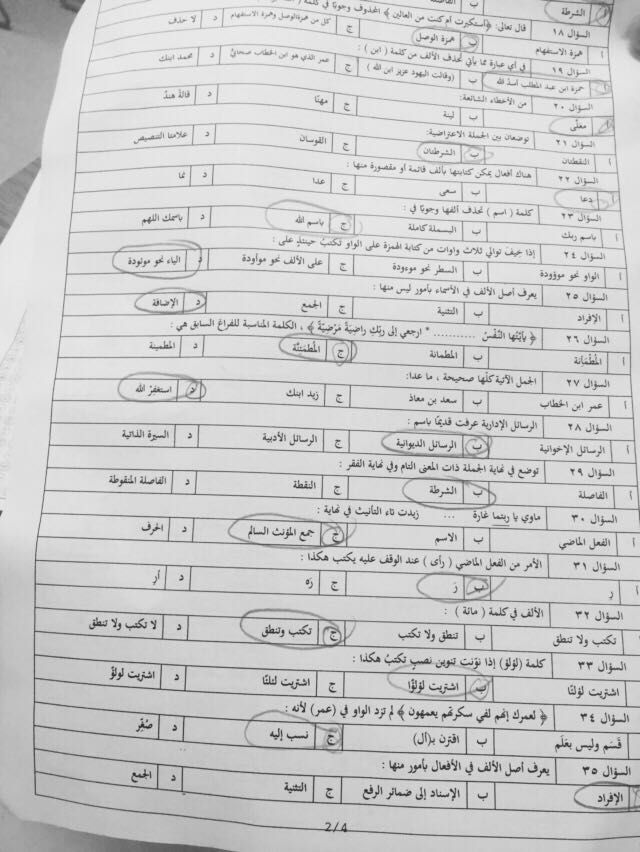 أ الشرطة
السؤال ١٨ قال تعالى: ﴿أستكبرت أم كنت من العالين﴾ المحذوف وجوبًا في كلمة
أ همزة الاستفهام ب همزة الوصل ج كل من همزة الوصل وهمزة الاستفهام د لا حذف
السؤال ١٩ في أي عبارة مما يأتي تحذف الألف من كلمة ( ابن ) :
أ حمزة ابن عبد المطلب أسدُ الله ب (وقالت اليهود عزير ابن الله ) ج عمر الذي هو ابن الخطاب صحابيٌّ د محمد ابنك
السؤال ٢٠ من الأخطاء الشائعة:
أ معلّى ب لينة ج مهنّا د قالةُ هندُ
السؤال ٢١ توضعان بين الجملة الاعتراضية:
أ النقطتان ب الشرطتان ج القوسان د علامتا التنصيص
السؤال ٢٢ هناك أفعال يمكن كتابتها بألف قائمة أو مقصورة منها :
أ دعا ب سعى ج عدا د نما
السؤال ٢٣ كلمة ( اسم ) تحذف ألفها وجوبًا في :
أ باسم ربك ب البسملة كاملة ج باسم الله د باسمك اللهم
السؤال ٢٤ إذا خِيفَ توالي ثلاث واوات من كتابة الهمزة على الواو تكتبُ حينئذٍ على :
أ الواو نحو موؤودة ب السطر نحو موءودة ج على الألف نحو موأودة د الياء نحو موئودة
السؤال ٢٥ يعرف أصل الألف في الأسماء بأمور ليس منها :
أ الإفراد ب التثنية ج الجمع د الإضافة
السؤال ٢٦ ﴿ يأيّتُها النَّفْسُ .......... * ارجعي إلى ربِّكِ راضِيَةً مَرْضِيّةً ﴾ ، الكلمة المناسبة للفراغ السابق هي :
أ المُطْمَأنة ب المطمانة ج المُطمَئنّة د المطمينة
السؤال ٢٧ الجمل الآتية كلّها صحيحة ، ما عدا:
أ عمر ابن الخطاب ب سعد بن معاذ ج زيد ابنك د استغفِرُ الله
السؤال ٢٨ الرسائل الإدارية عرفت قديمًا باسم :
أ الرسائل الإخوانية ب الرسائل الديوانية ج الرسائل الأدبية د السيرة الذاتية
السؤال ٢٩ توضع في نهاية الجملة ذات المعنى التام وفي نهاية الفقر :
أ الفاصلة ب الشرطة ج النقطة د الفاصلة المنقوطة
السؤال ٣٠ ماوي يا ربتما غارة ... زيدت تاء التأنيث في نهاية :
أ الفعل الماضي ب الاسم ج جمع المؤنث السالم د الحرف
السؤال ٣١ الأمر من الفعل الماضي ( رأى ) عند الوقف عليه يكتب هكذا :
أ رِ ب رَ ج رَه د أرِ
السؤال ٣٢ الألف في كلمة ( مائة ) :
تكتب ولا تنطق ب تنطق ولا تكتب ج تكتب وتنطق د لا تكتب ولا تنطق
السؤال ٣٣ كلمة (لؤلؤ) إذا نوّنت تنوين نصبٍ تكتبُ هكذا :
اشتريت لؤلئًا ب اشتريت لؤلؤًا ج اشتريت لئلئًا د اشتريت لولؤًا
السؤال ٣٤ ﴿ لعمرك إنهم لفي سكرتهم يعمهون ﴾ لم تزد الواو في (عمر) لأنه :
قَسَم وليس بعَلَم ب اقترن بـ(أل) ج نسب إليه د صُغِّر
السؤال ٣٥ يعرف أصل الألف في الأفعال بأمور منها :
الإفراد ب الإسناد إلى ضمائر الرفع ج التثنية د الجمع
2/4